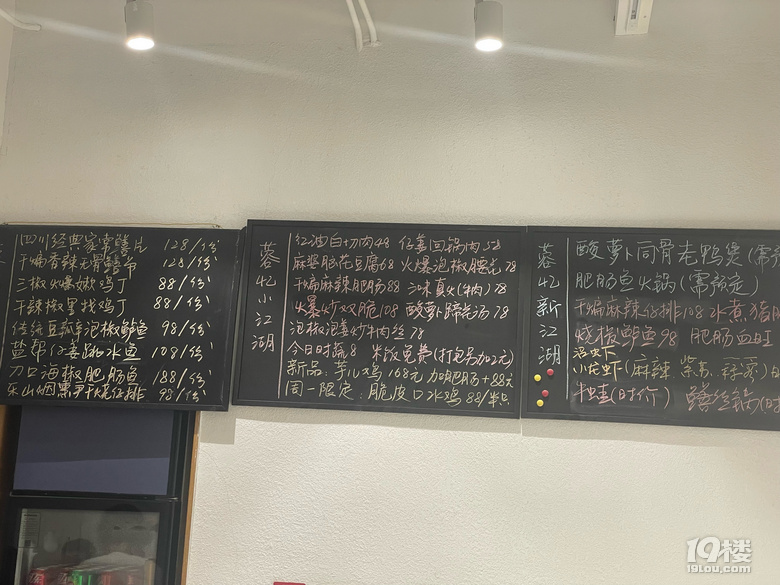 四川经典家常鳝片 128/份
干煸香辣无骨鳝节 128/份
三椒火爆嫩鸡丁 88/份
干辣椒里找鸡丁 88/份
传统豆瓣泡椒鲈鱼 98/份
盐帮仔姜跳水鱼 108/份
刀口海椒肥肠鱼 188/份
乐山烟熏干烧仔排 98/份
蓉忆小江湖
红油白切肉48 仔姜回锅肉58
麻婆脑花豆腐68 火爆泡椒腰花78
干煸麻辣肥肠88 三味真火(牛肉)78
火爆炒双脆108 酸萝卜蹄花汤78
泡椒泡姜炒牛肉丝78
今日时蔬8 米饭免费(打包另加2元)
新品:芋儿鸡168元 加肥肠+88元
周一限定:脆皮口水鸡88/半只
蓉忆新江湖
酸萝卜同骨老鸭煲(需
肥肠鱼火锅(需预定)
干煸麻辣仔排108 水煮猪
烧椒鲈鱼98 肥肠血旺
小龙虾(麻辣 紫苏
牛蛙(时价) 鳝丝锅(时
19楼
19lou.com